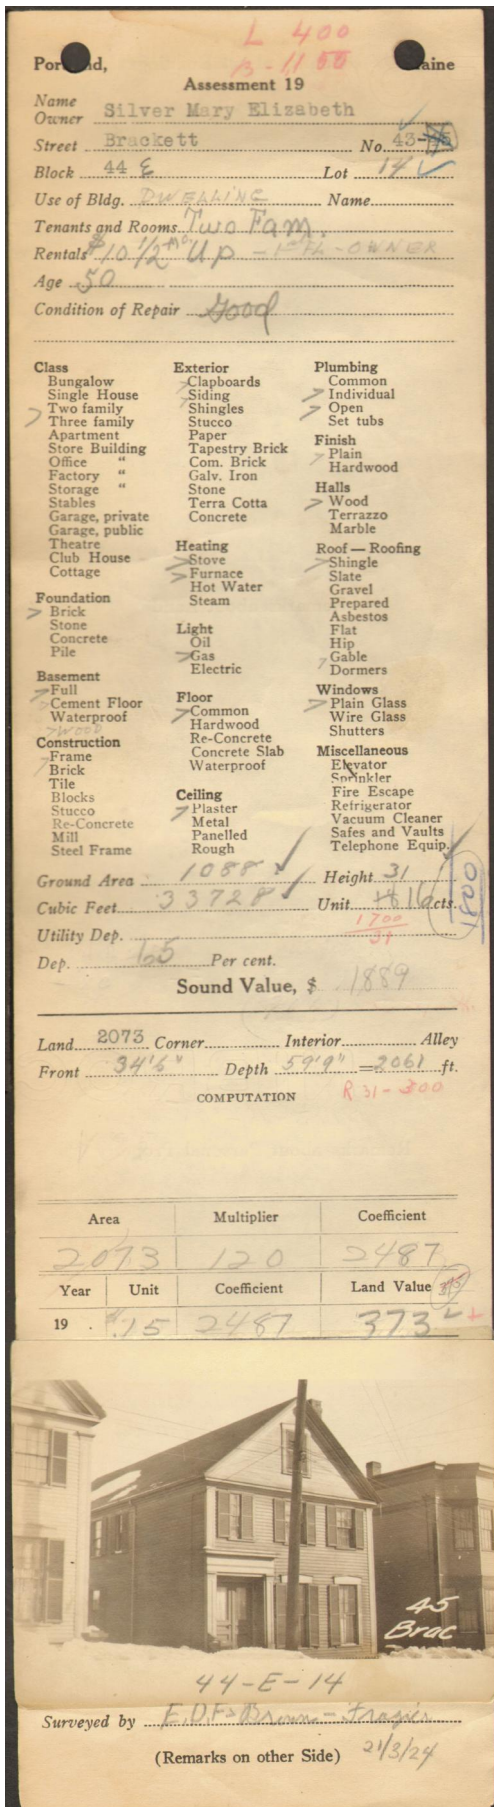 L 400
B-1150
Portland, Maine
Assessment 19
Name
Owner Silver Mary Elizabeth
Street Brackett No. 43-45
Block 44 E Lot 14
Use of Bldg. DWELLING Name
Tenants and Rooms Two Fam.
Rentals $10 1/2 mo. Up - 1st FL - OWNER
Age 50
Condition of Repair Good
Class
Bungalow
Single House
Two family
Three family
Apartment
Store Building
Office "
Factory "
Storage "
Stables
Garage, private
Garage, public
Theatre
Club House
Cottage
Foundation
Brick
Stone
Concrete
Pile
Basement
Full
Cement Floor
Waterproof
Wood
Construction
Frame
Brick
Tile
Blocks
Stucco
Re-Concrete
Mill
Steel Frame
Exterior
Clapboards
Siding
Shingles
Stucco
Paper
Tapestry Brick
Com. Brick
Galv. Iron
Stone
Terra Cotta
Concrete
Heating
Stove
Furnace
Hot Water
Steam
Light
Oil
Gas
Electric
Floor
Common
Hardwood
Re-Concrete
Concrete Slab
Waterproof
Ceiling
Plaster
Metal
Panelled
Rough
Plumbing
Common
Individual
Open
Set tubs
Finish
Plain
Hardwood
Halls
Wood
Terrazzo
Marble
Roof — Roofing
Shingle
Slate
Gravel
Prepared
Asbestos
Flat
Hip
Gable
Dormers
Windows
Plain Glass
Wire Glass
Shutters
Miscellaneous
Elevator
Sprinkler
Fire Escape
Refrigerator
Vacuum Cleaner
Safes and Vaults
Telephone Equip.
Ground Area 1088 Height 31
Cubic Feet 33728 Unit 16 cts.
1800
1700
31
Utility Dep.
Dep. 65 Per cent.
Sound Value, $ 1889
Land 2073 Corner Interior Alley
Front 34'6" Depth 59'9" = 2061 ft.
COMPUTATION R 31-300
Area Multiplier Coefficient
2073 120 2487
Year Unit Coefficient Land Value 375
19 . $.15 2487 373
45
Brac
44-E-14
Surveyed by E.D.F. Brown - Frazier
(Remarks on other Side) 21/3/24